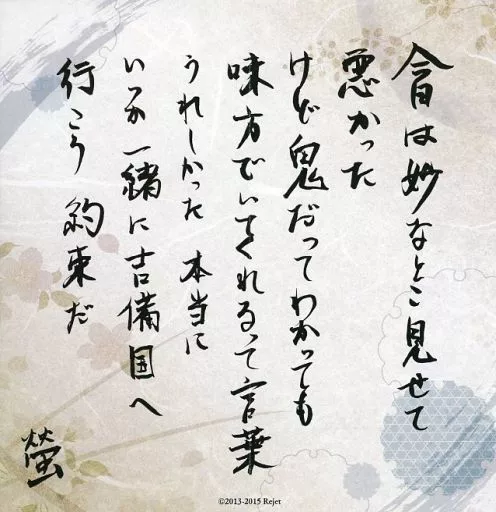 今日は妙なとこ見せて
悪かった
けど鬼だってわかっても
味方でいてくれるって言葉
うれしかった 本当に
いつか一緒に吉備国へ
行こう 約束だ
螢
©2013-2015 Rejet